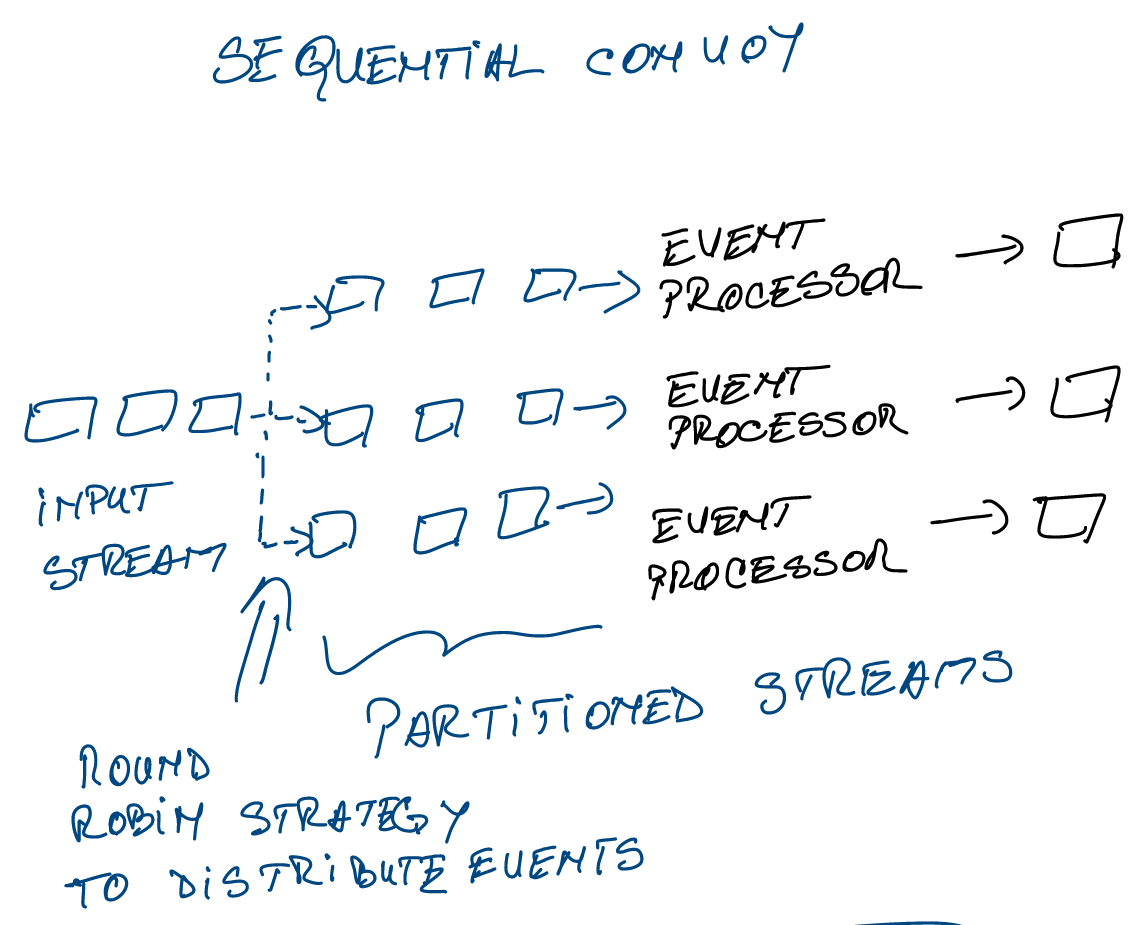 SEQUENTIAL CONVOY
EVENT
PROCESSOR
EVENT
PROCESSOR
INPUT
STREAM
EVENT
PROCESSOR
PARTITIONED STREAMS
ROUND
ROBIN STRATEGY
TO DISTRIBUTE EVENTS